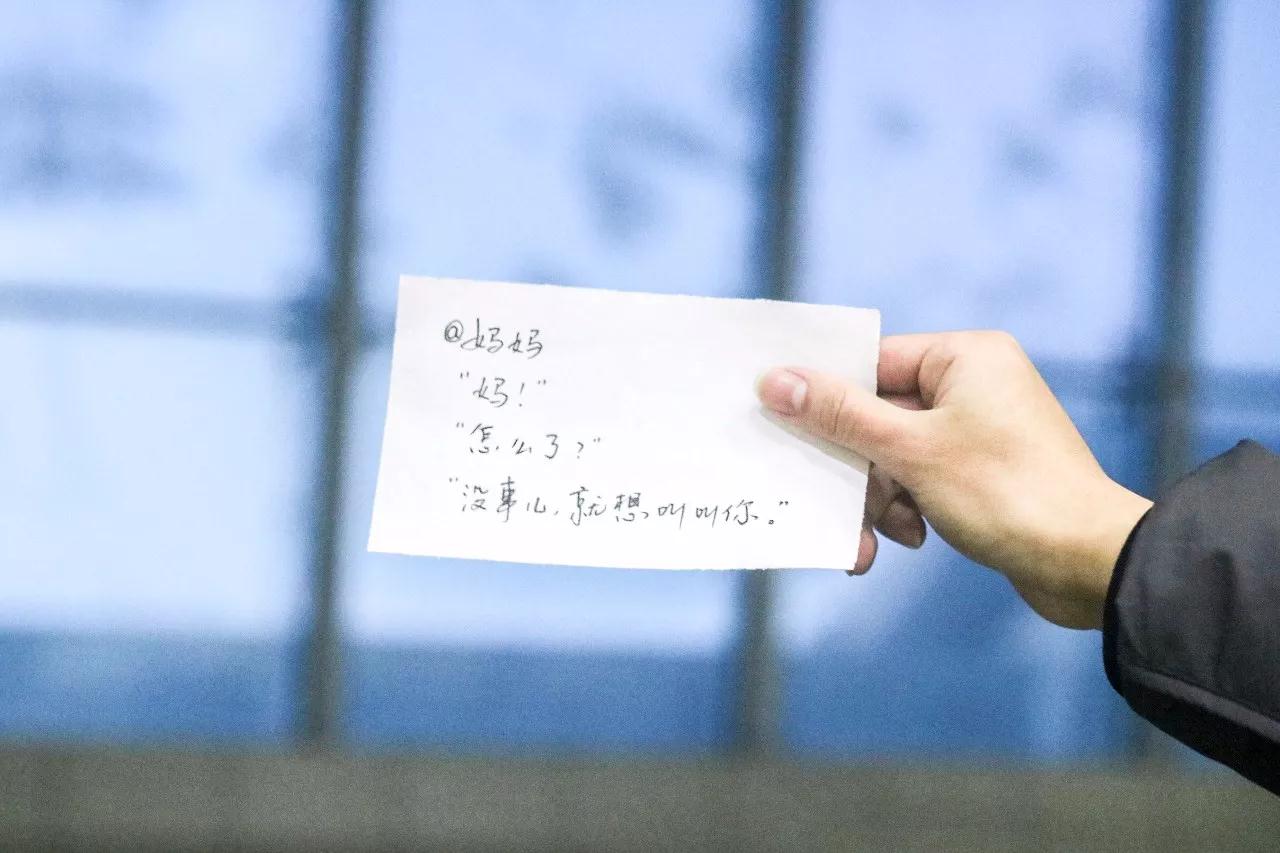 @妈妈
“妈！”
“怎么了？”
“没事儿，就想叫叫你。”